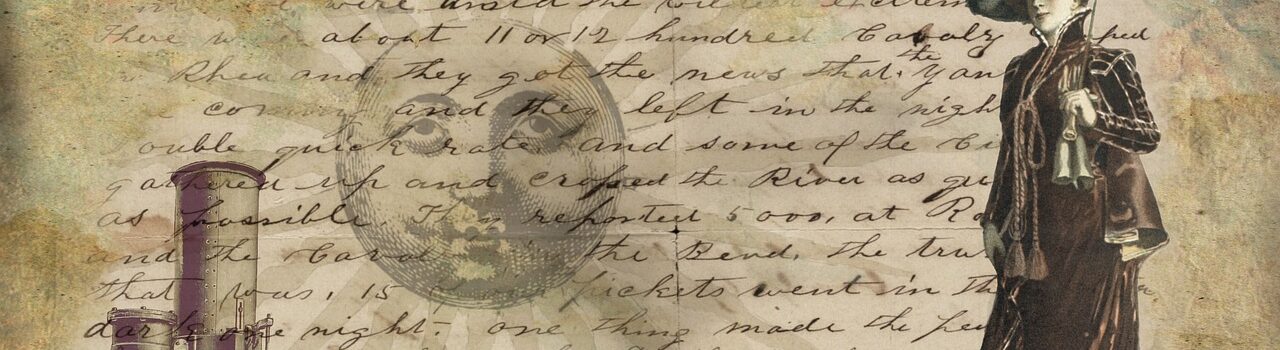 were the
There about 11 or 12 hundred Cavalry
Rhea and they got the news that the Yan
and they left in the nigh
ouble quick rate and some of the
gathered up and crossed the River as qu
as possible. They reported 5000, at Ro
and the Caval in the Bend, the tru
that was, 15 Pickets went in th
dark one night- one thing made the